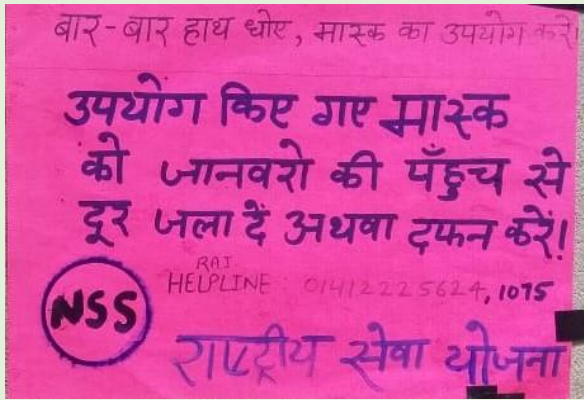 बार-बार हाथ धोए, मास्क का उपयोग करें।
उपयोग किए गए मास्क
को जानवरो की पँहुच से
दूर जला दें अथवा दफन करें!
RAJ.
HELPLINE : 01412225624, 1075
NSS
राष्ट्रीय सेवा योजना